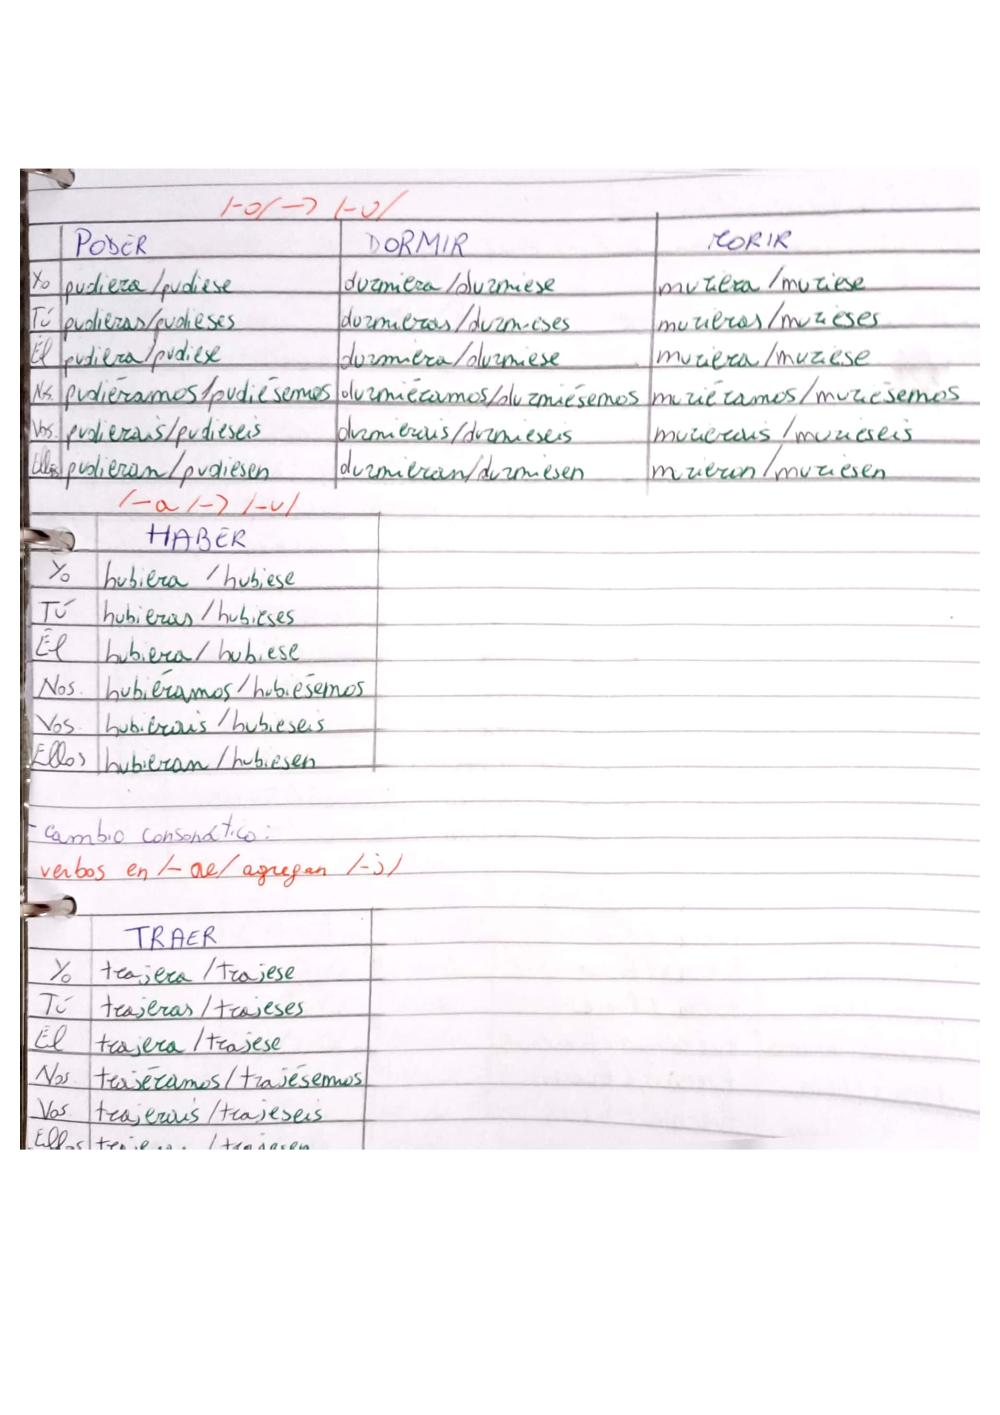 /-o/ -> /-u/
PODER DORMIR MORIR
Yo pudiera/pudiese durmiera/durmiese muriera/muriese
Tú pudieras/pudieses durmieras/durmieses murieras/murieses
Él pudiera/pudiese durmiera/durmiese muriera/muriese
Ns. pudiéramos/pudiésemos durmiéramos/durmiésemos muriéramos/muriésemos
Vos. pudierais/pudieseis durmierais/durmieseis murierais/murieseis
Ellos pudieran/pudiesen durmieran/durmiesen murieran/muriesen
/-a/ -> /-u/
HABER
Yo hubiera/hubiese
Tú hubieras/hubieses
Él hubiera/hubiese
Nos. hubiéramos/hubiésemos
Vos. hubierais/hubieseis
Ellos hubieran/hubiesen
- cambio consonático:
verbos en /-ae/ agregan /-j/
TRAER
Yo trajera/trajese
Tú trajeras/trajeses
Él trajera/trajese
Nos. trajéramos/trajésemos
Vos. trajerais/trajeseis
Ellos /trajesen